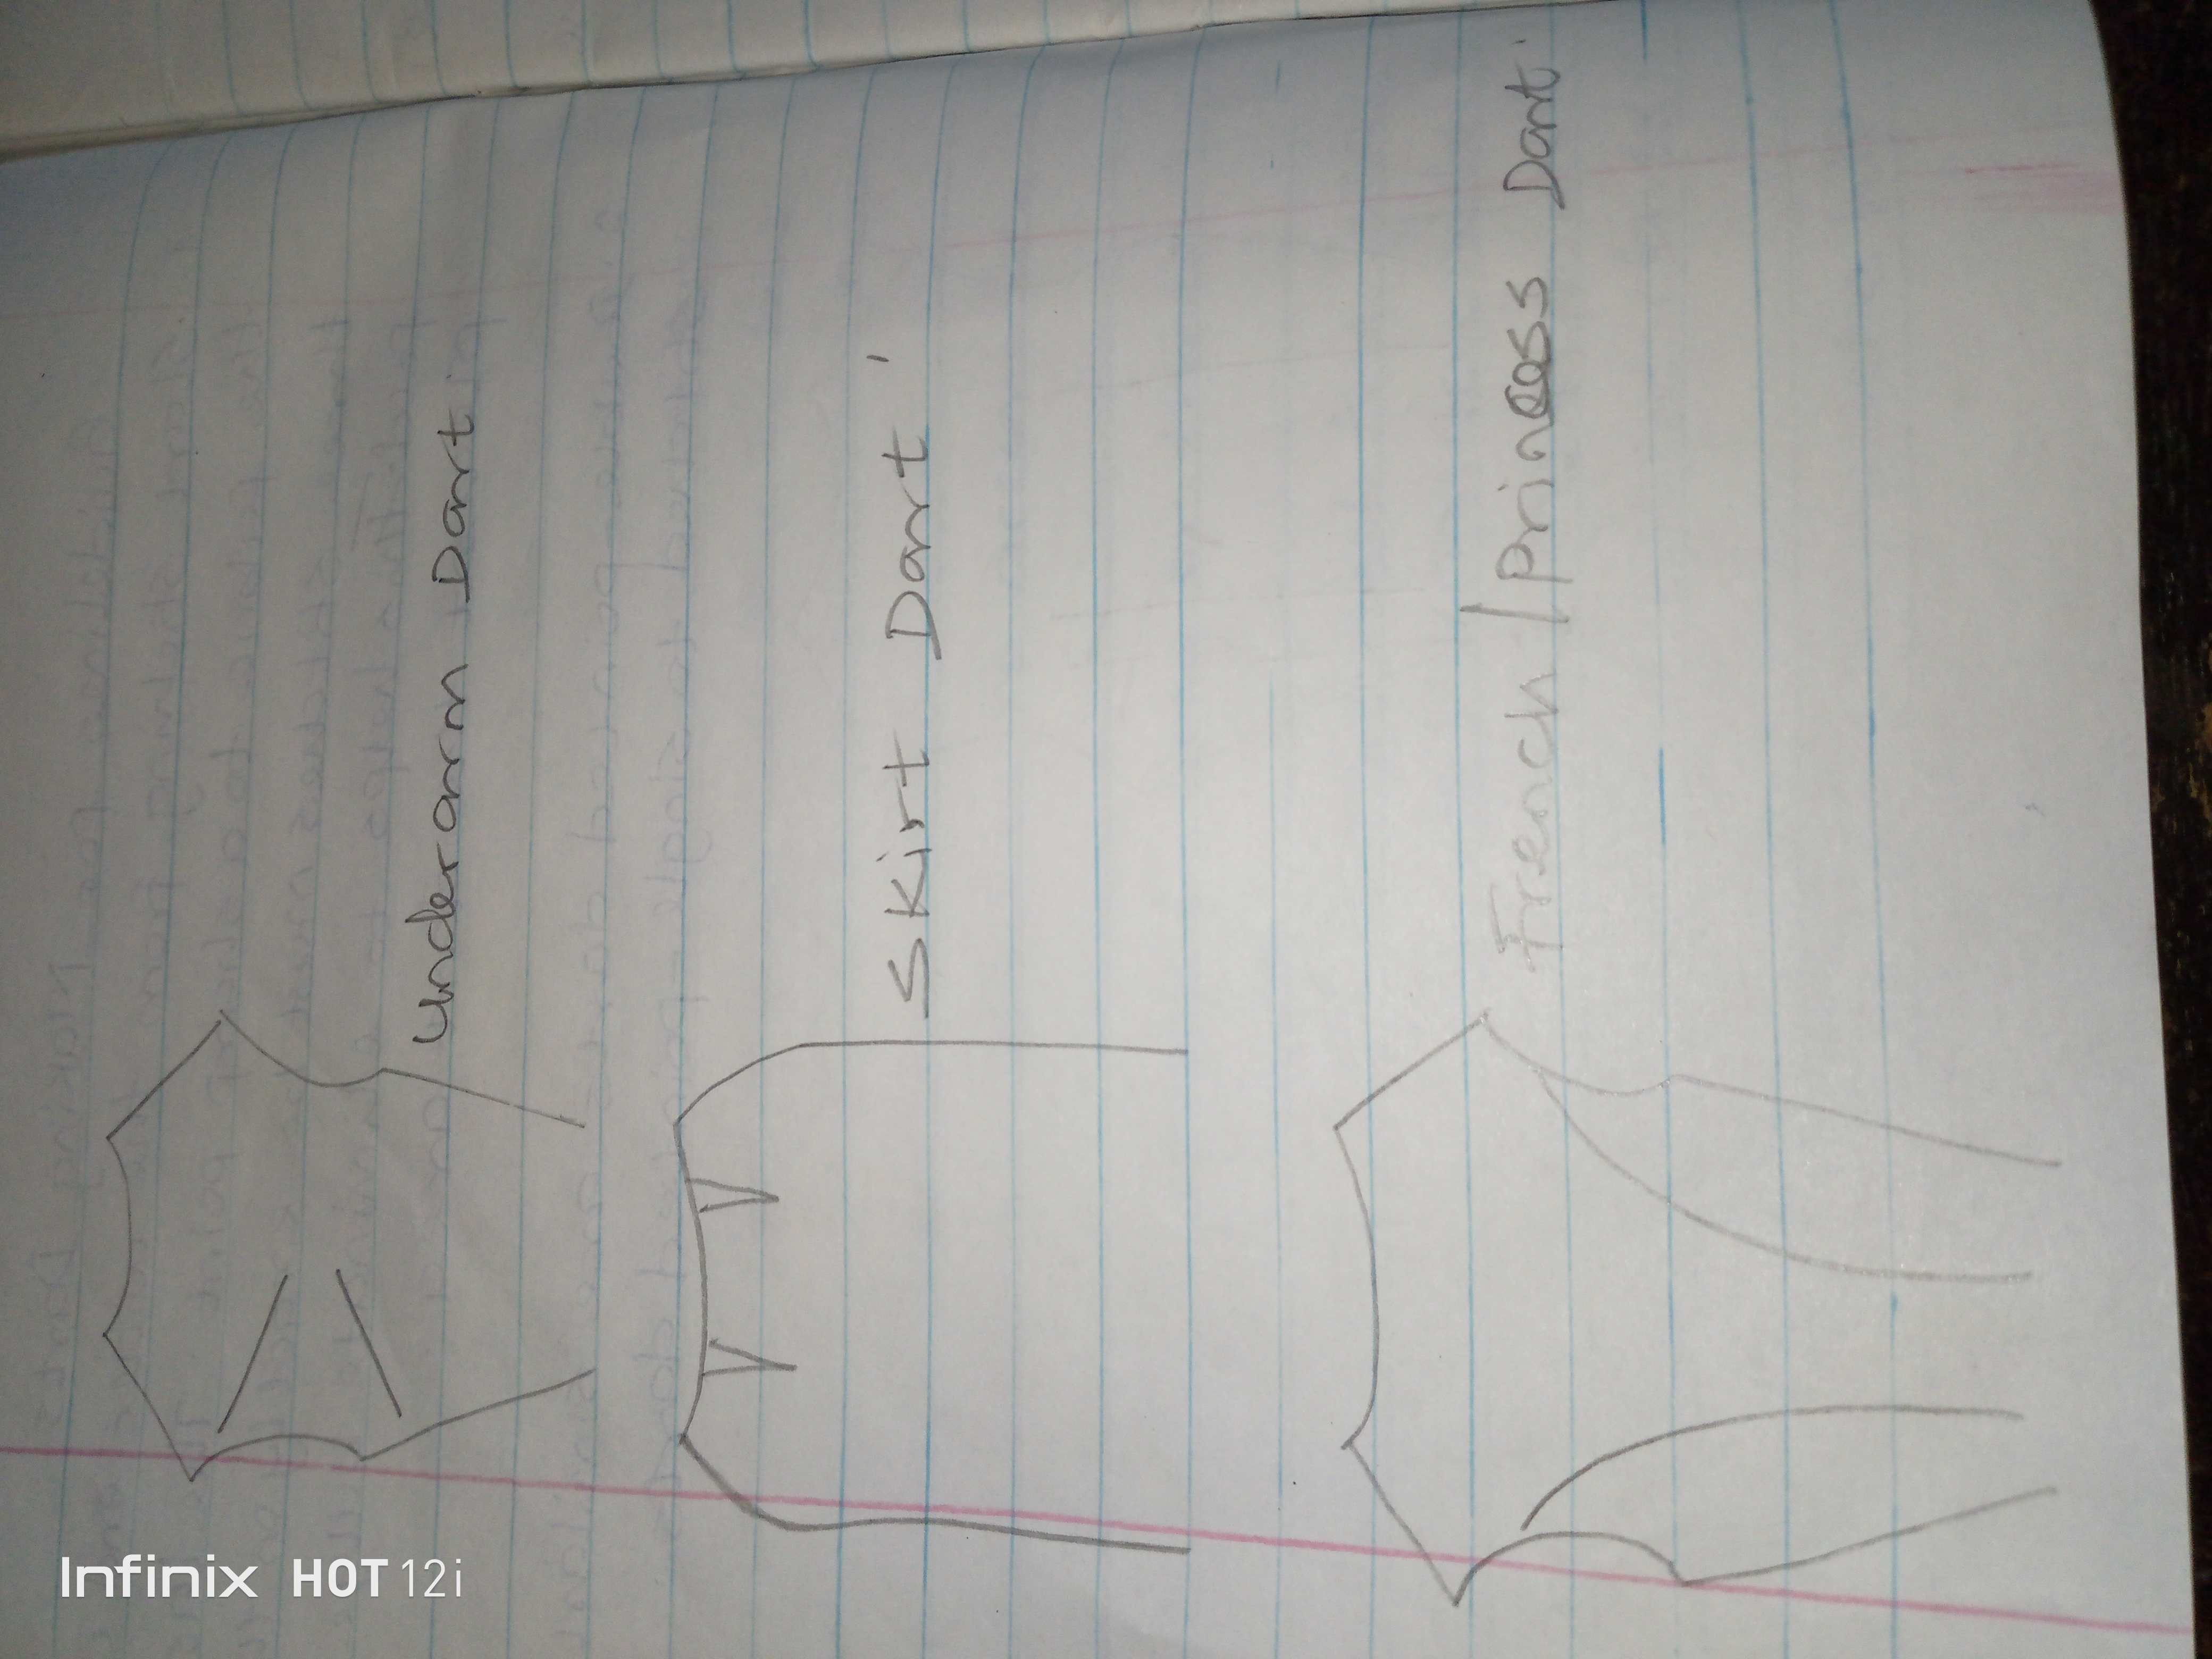 Underarm Dart
Skirt Dart
French / Princess Dart
Infinix HOT 12i